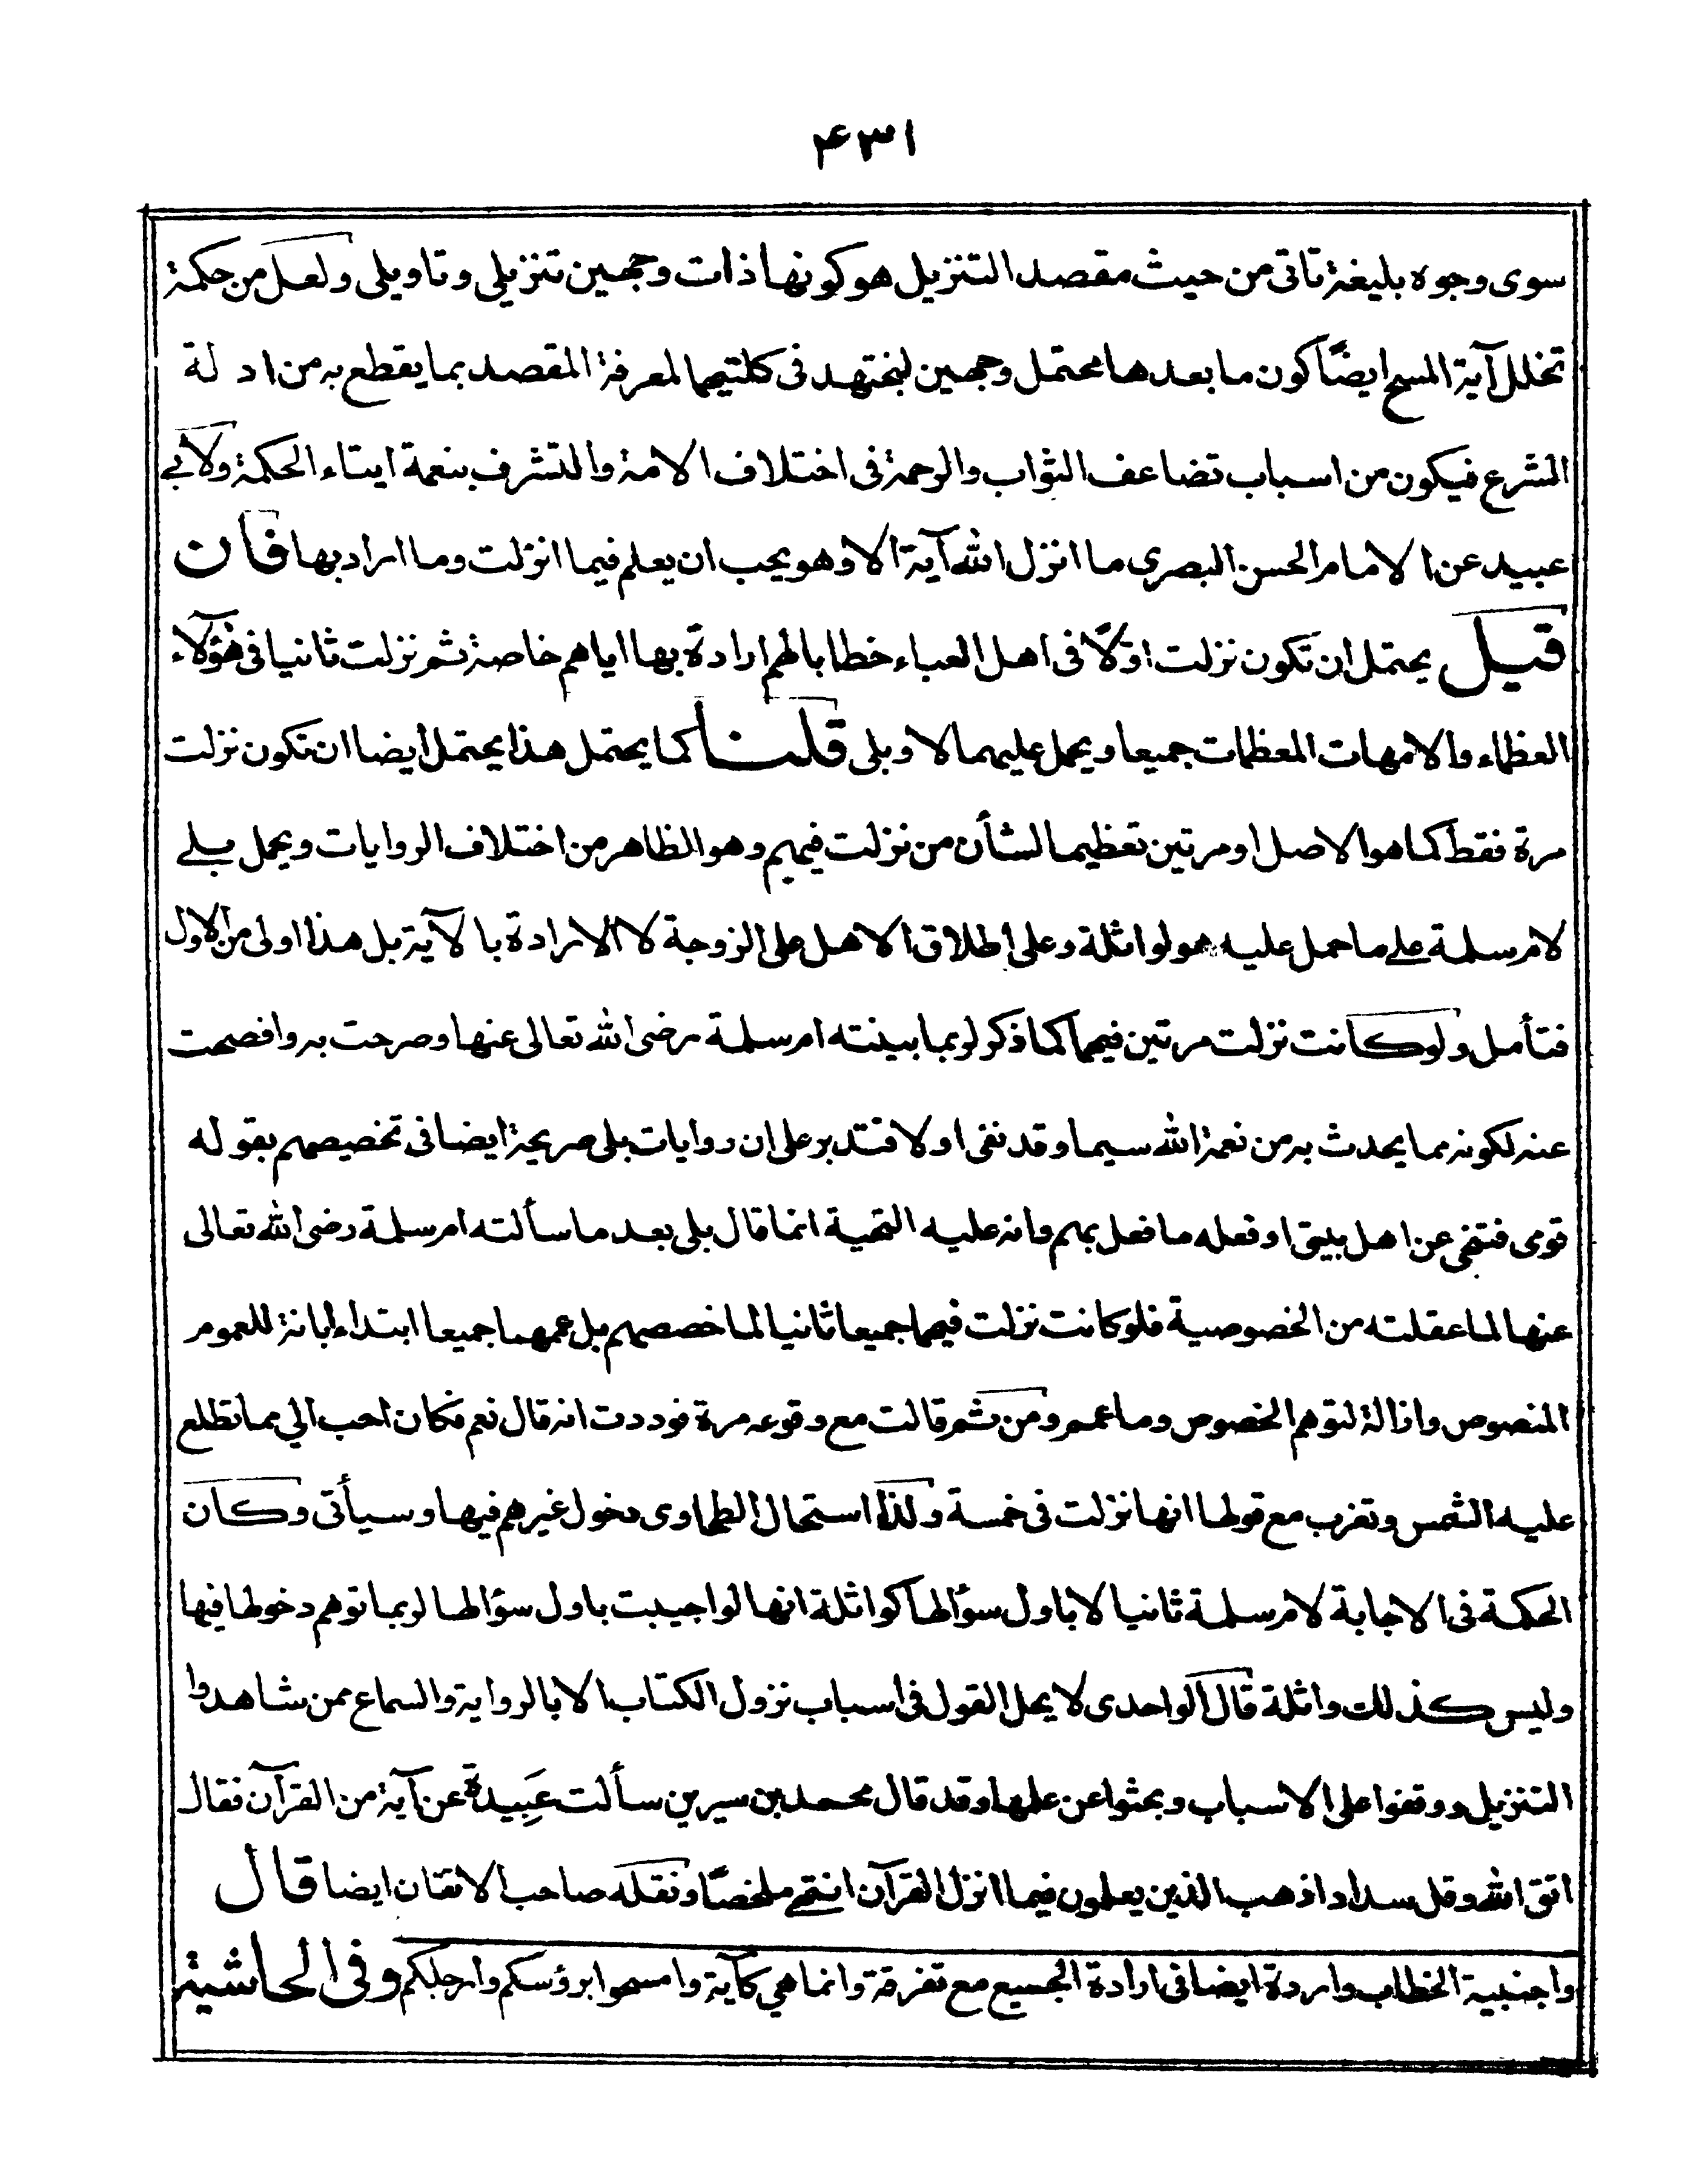 ۴۳۱
سوى وجوه بليغة تاتى من حيث مقصد التنزيل هو كونها ذات وجهين تنزيلي وتاويلى ولعل من حكمة
تخلل آية المسح ايضًا كون ما بعدها محتمل وجهين لنجتهد فى كلتيهما لمعرفة المقصد بما يقطع به من ادلة
الشرع فيكون من اسباب تضاعف الثواب والرحمة فى اختلاف الامة والتشرف بنعمة ايتاء الحكمة ولابي
عبيد عن الامام الحسن البصرى ما انزل الله آية الا وهو يحب ان يعلم فيما انزلت وما اراد بها فان
قيل يحتمل ان تكون نزلت اوّلًا فى اهل العباء خطابا لهم ارادة بها اياهم خاصة ثم نزلت ثانيا فى هؤلاء
العظماء والامهات المعظمات جميعا ويحمل عليهما لا وبلى قلنا كما يحتمل هذا يحتمل ايضا ان تكون نزلت
مرة فقط كما هو الاصل او مرتين تعظيما لشأن من نزلت فيهم وهو الظاهر من اختلاف الروايات ويحمل بلے
لام سلمة علے ما حمل عليه هو لواثلة وعلى اطلاق الاهل على الزوجة لا الارادة بالآية بل هذا اولى من الاول
فتأمل ولو كانت نزلت مرتين فيهما كما ذكر لربما بينته ام سلمة رضى الله تعالى عنها وصرحت به وافصحت
عنه لكونه مما يحدث به من نعمة الله سيما وقد نفى اولا فتدبر على ان روايات بلى صريحة ايضا فى تخصيصهم بقوله
قومى فتنحي عن اهل بيتى او فعله ما فعل بهم وانه عليه التحية انما قال بلى بعد ما سألته ام سلمة رضى الله تعالى
عنها لما عقلته من الخصوصية فلو كانت نزلت فيهما جميعا ثانيا لما خصصهم بل عمهما جميعا ابتداء ابانة للعموم
المنصوص وازالة لتوهم الخصوص وما عمم ومن ثم قالت مع وقوعه مرة فوددت انه قال نعم فكان احب الي مما تطلع
عليه الشمس وتغرب مع قولها انها نزلت فى خمسة ولذا استحال الطحاوى دخول غيرهم فيها وسيأتى وكان
الحكمة فى الاجابة لام سلمة ثانيا لا باول سؤالها كواثلة انها لو اجيبت باول سؤالها لربما توهم دخولها فيها
وليس كذلك واثلة قال الواحدى لا يحل القول فى اسباب نزول الكتاب الا بالرواية والسماع ممن شاهدوا
التنزيل ووقفوا على الاسباب وبحثوا عن علمها وقد قال محمد بن سيرين سألت عَبِيدة عن آية من القرآن فقال
اتق الله وقل سدادا ذهب الذين يعلمون فيما انزل القرآن انتهے ملخصًا ونقله صاحب الاتقان ايضا قال
واجنبية الخطاب واردة ايضا فى ارادة الجميع مع تفرقة وانما هي كآية وامسحوا برؤسكم وارجلكم وفى الحاشية